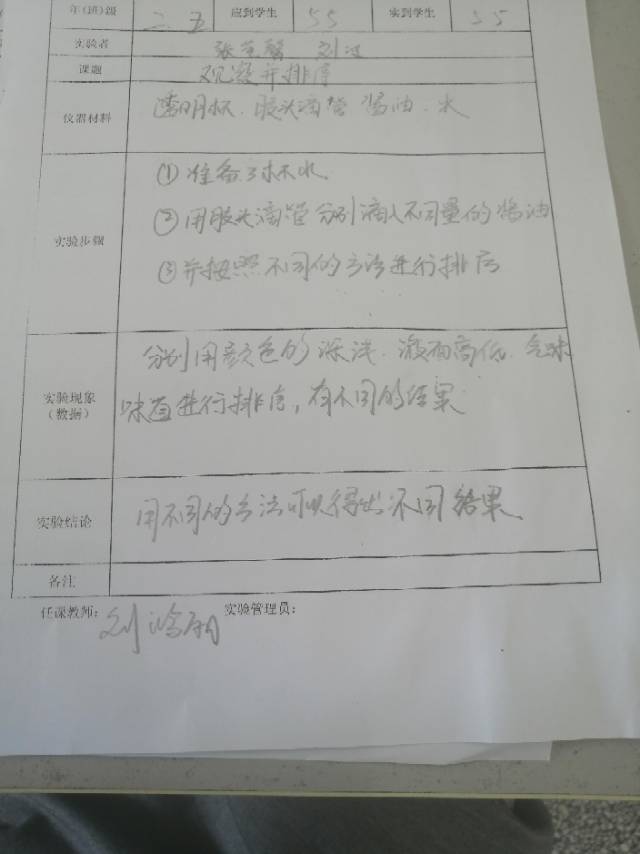 年(班)级 二.五 应到学生 55 实到学生 55
实验者 张 刘
课题 观察并排序
仪器材料 透明杯、胶头滴管 酱油、水
实验步骤 ①准备3杯水
②用胶头滴管分别滴入不同量的酱油
③并按照不同的方法进行排序
实验现象(数据) 分别用颜色的深浅、液面高低、气味
味道进行排序,有不同的结果
实验结论 用不同的方法可以得出不同结果。
备注
任课教师: 刘 实验管理员: